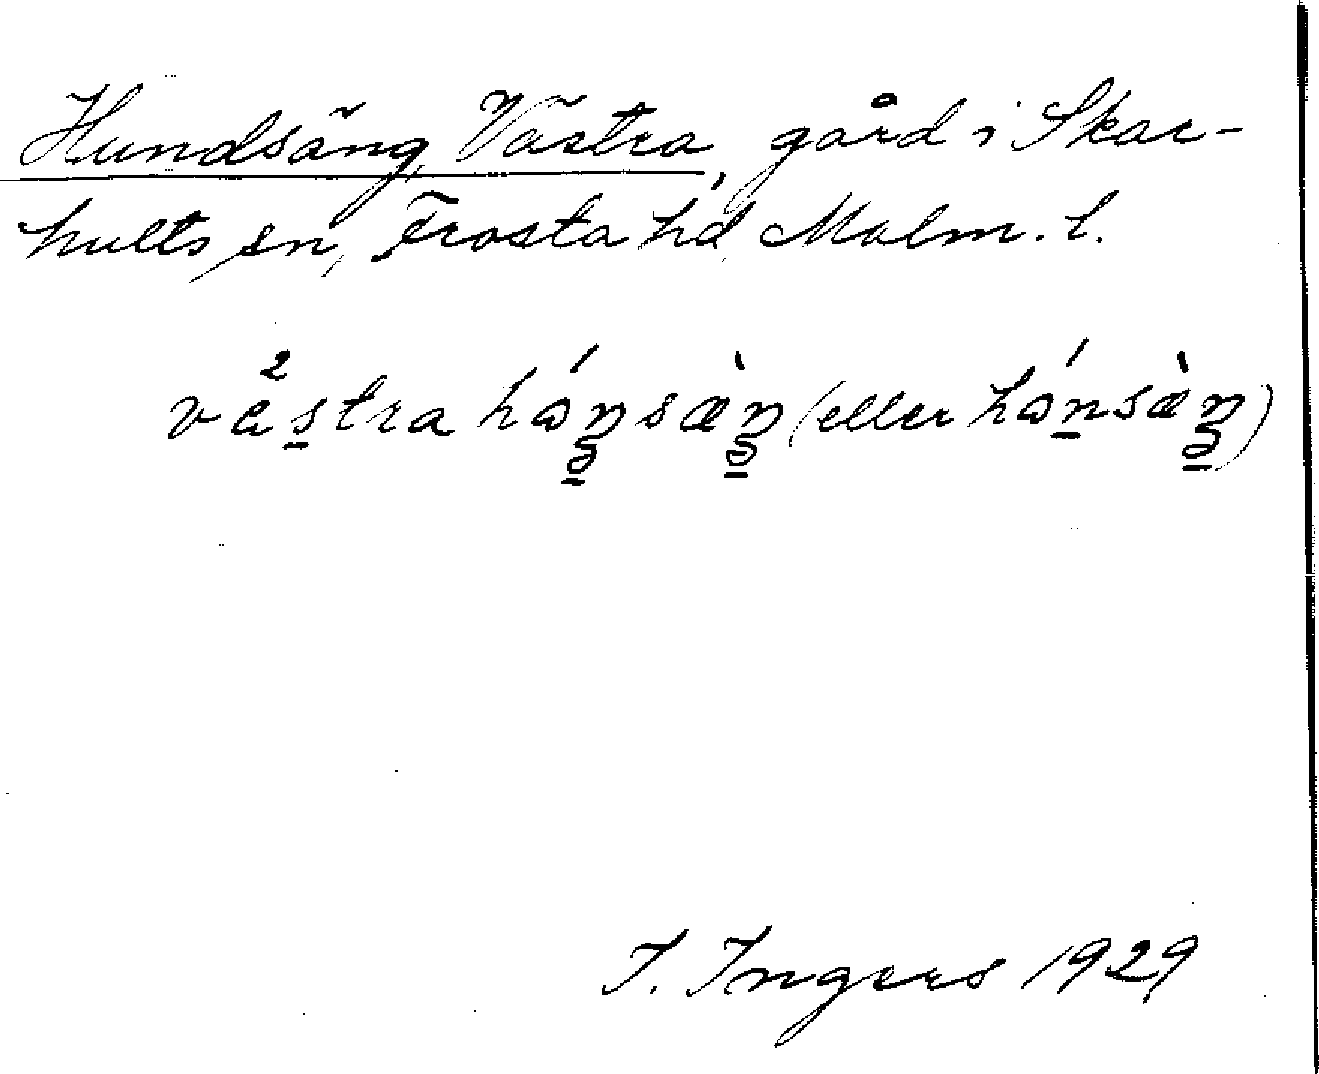 Hundsäng, Västra, gård i Skar-
hults sn, Frosta hd, Malm. l.
våstra hónsæ̀n (eller hónsæ̀n)
I. Ingers 1929